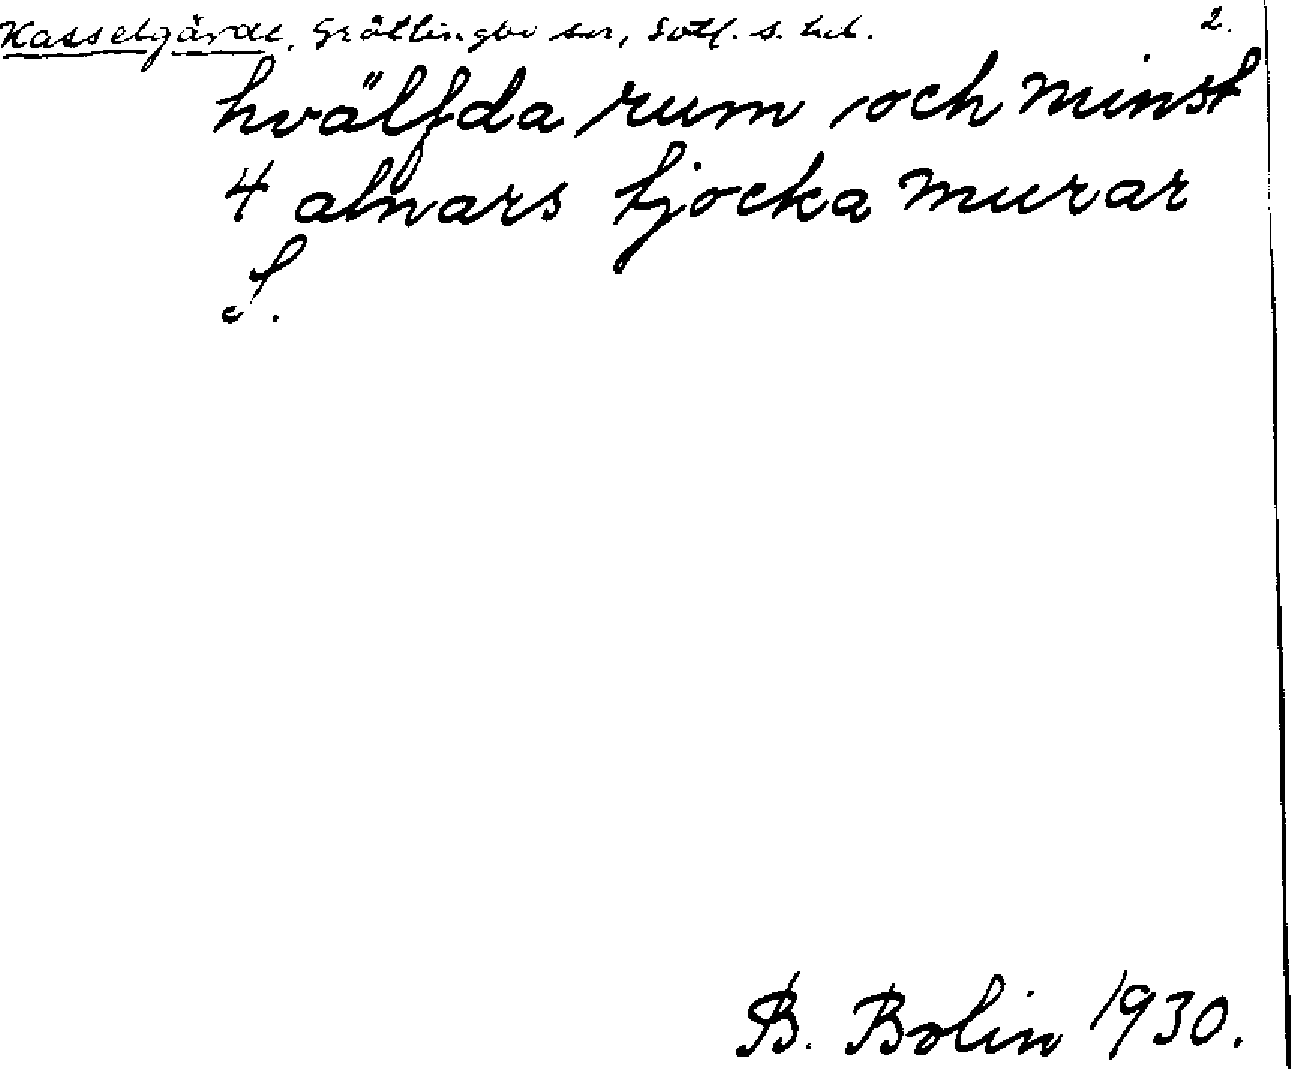 Kasselgärde, Grötlingbo sn, Gotl. s. hd. 2.
hvälfda rum och minst
4 alnars tjocka murar
S.
B. Bolin 1930.